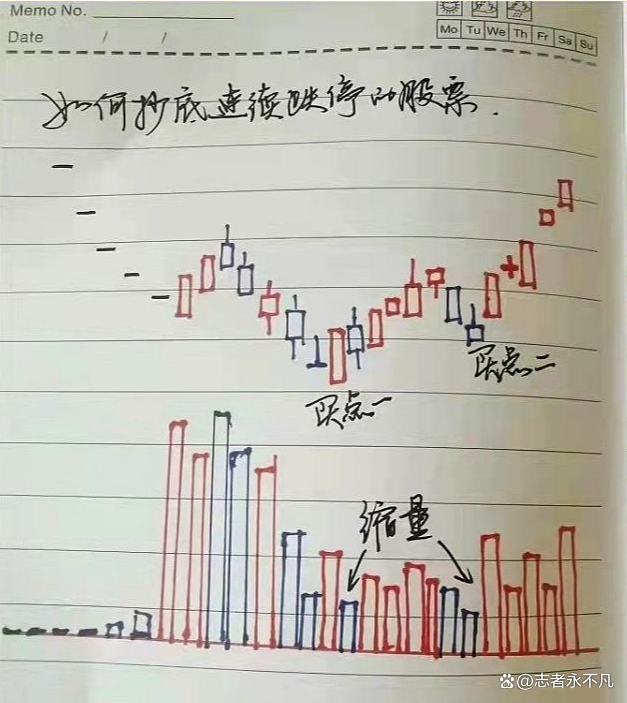 Memo No.
Mo Tu We Th Fr Sa Su
Date / /
如何抄底连续跌停的股票.
买点二
买点一
缩量
@志者永不凡